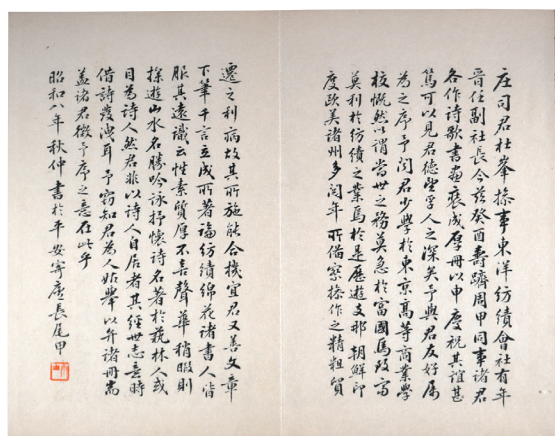 庄司君杜峯操事東洋紡績會社有年
晉任副社長今茲癸酉壽躋周甲同事諸君
各作詩歌書畫裒成厚冊以申慶祝其誼甚
篤可以見君德望孚人之深矣予與君友好属
為之序予聞君少學於東京高等商業學
校慨然以謂當世之務莫急於富國焉致富
莫利於紡績之業焉於是歷遊支那朝鮮印
度歐美諸州多閱年所備察操作之精粗貿
遷之利病故其所施能合機宜君又善文章
下筆千言立成所著論紡績綿花諸書人皆
服其遠識云性素質厚不喜聲華稍暇則
探遊山水名勝吟詠抒懷詩名著於藝林人或
目為詩人然君非以詩人自居者其經世志意時
借詩發洩耳予竊知君為人略舉以弁諸冊耑
蓋諸君徵予序之意在此乎
昭和八年秋仲書於平安寄廬長尾甲